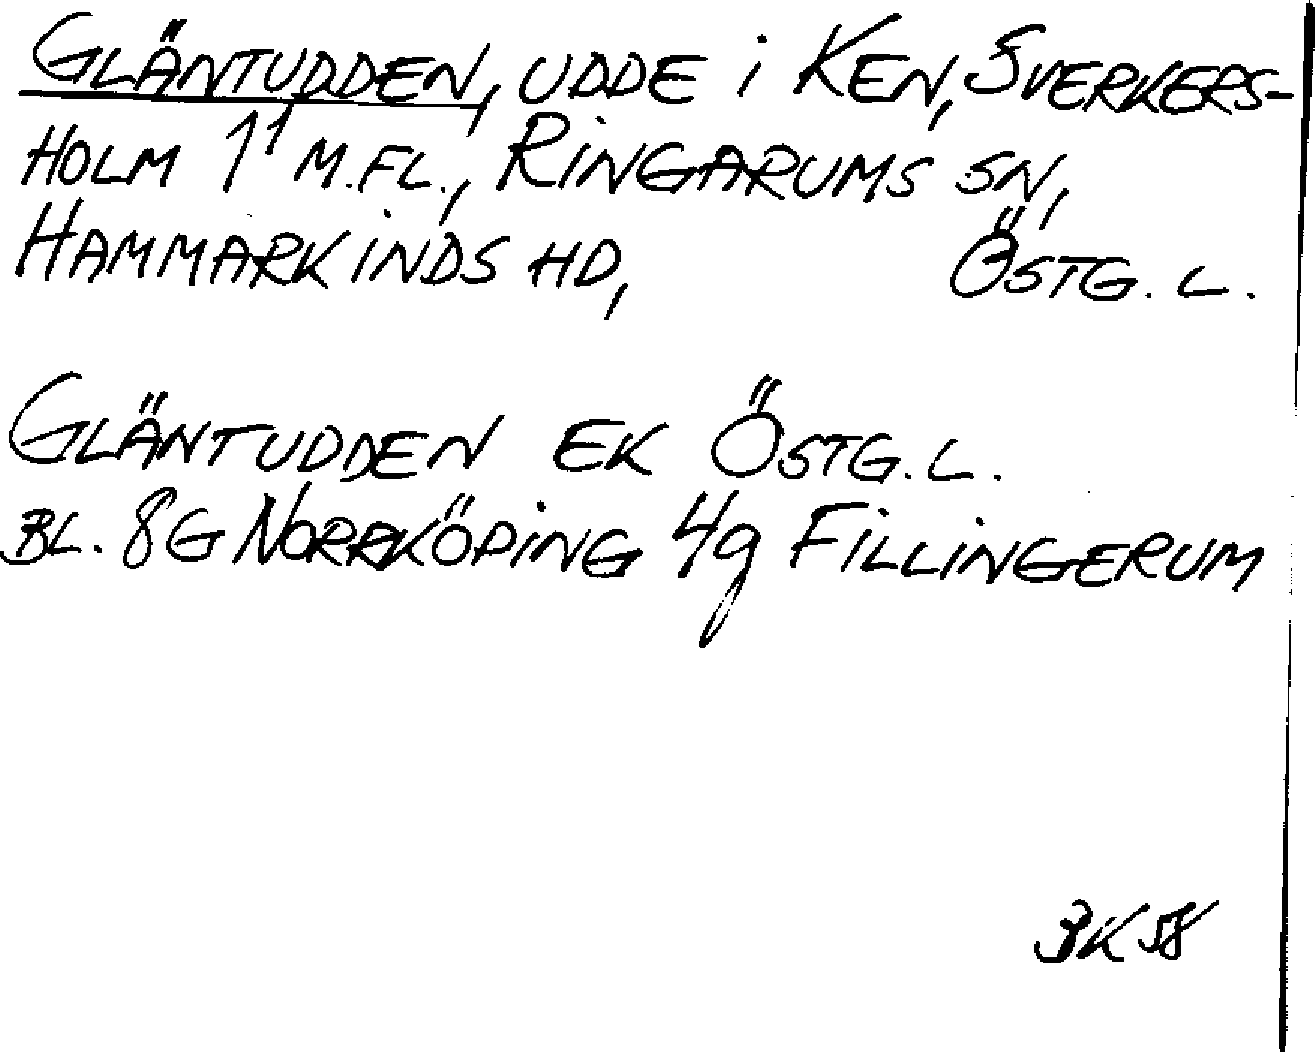 GLÄNTUDDEN, UDDE i KEN, SVERKERS-
HOLM 1¹ M.FL., RINGARUMS SN,
HAMMARKINDS HD, ÖSTG. L.
GLÄNTUDDEN EK ÖSTG. L.
BL. 8G NORRKÖPING 4g FILLINGERUM
BK